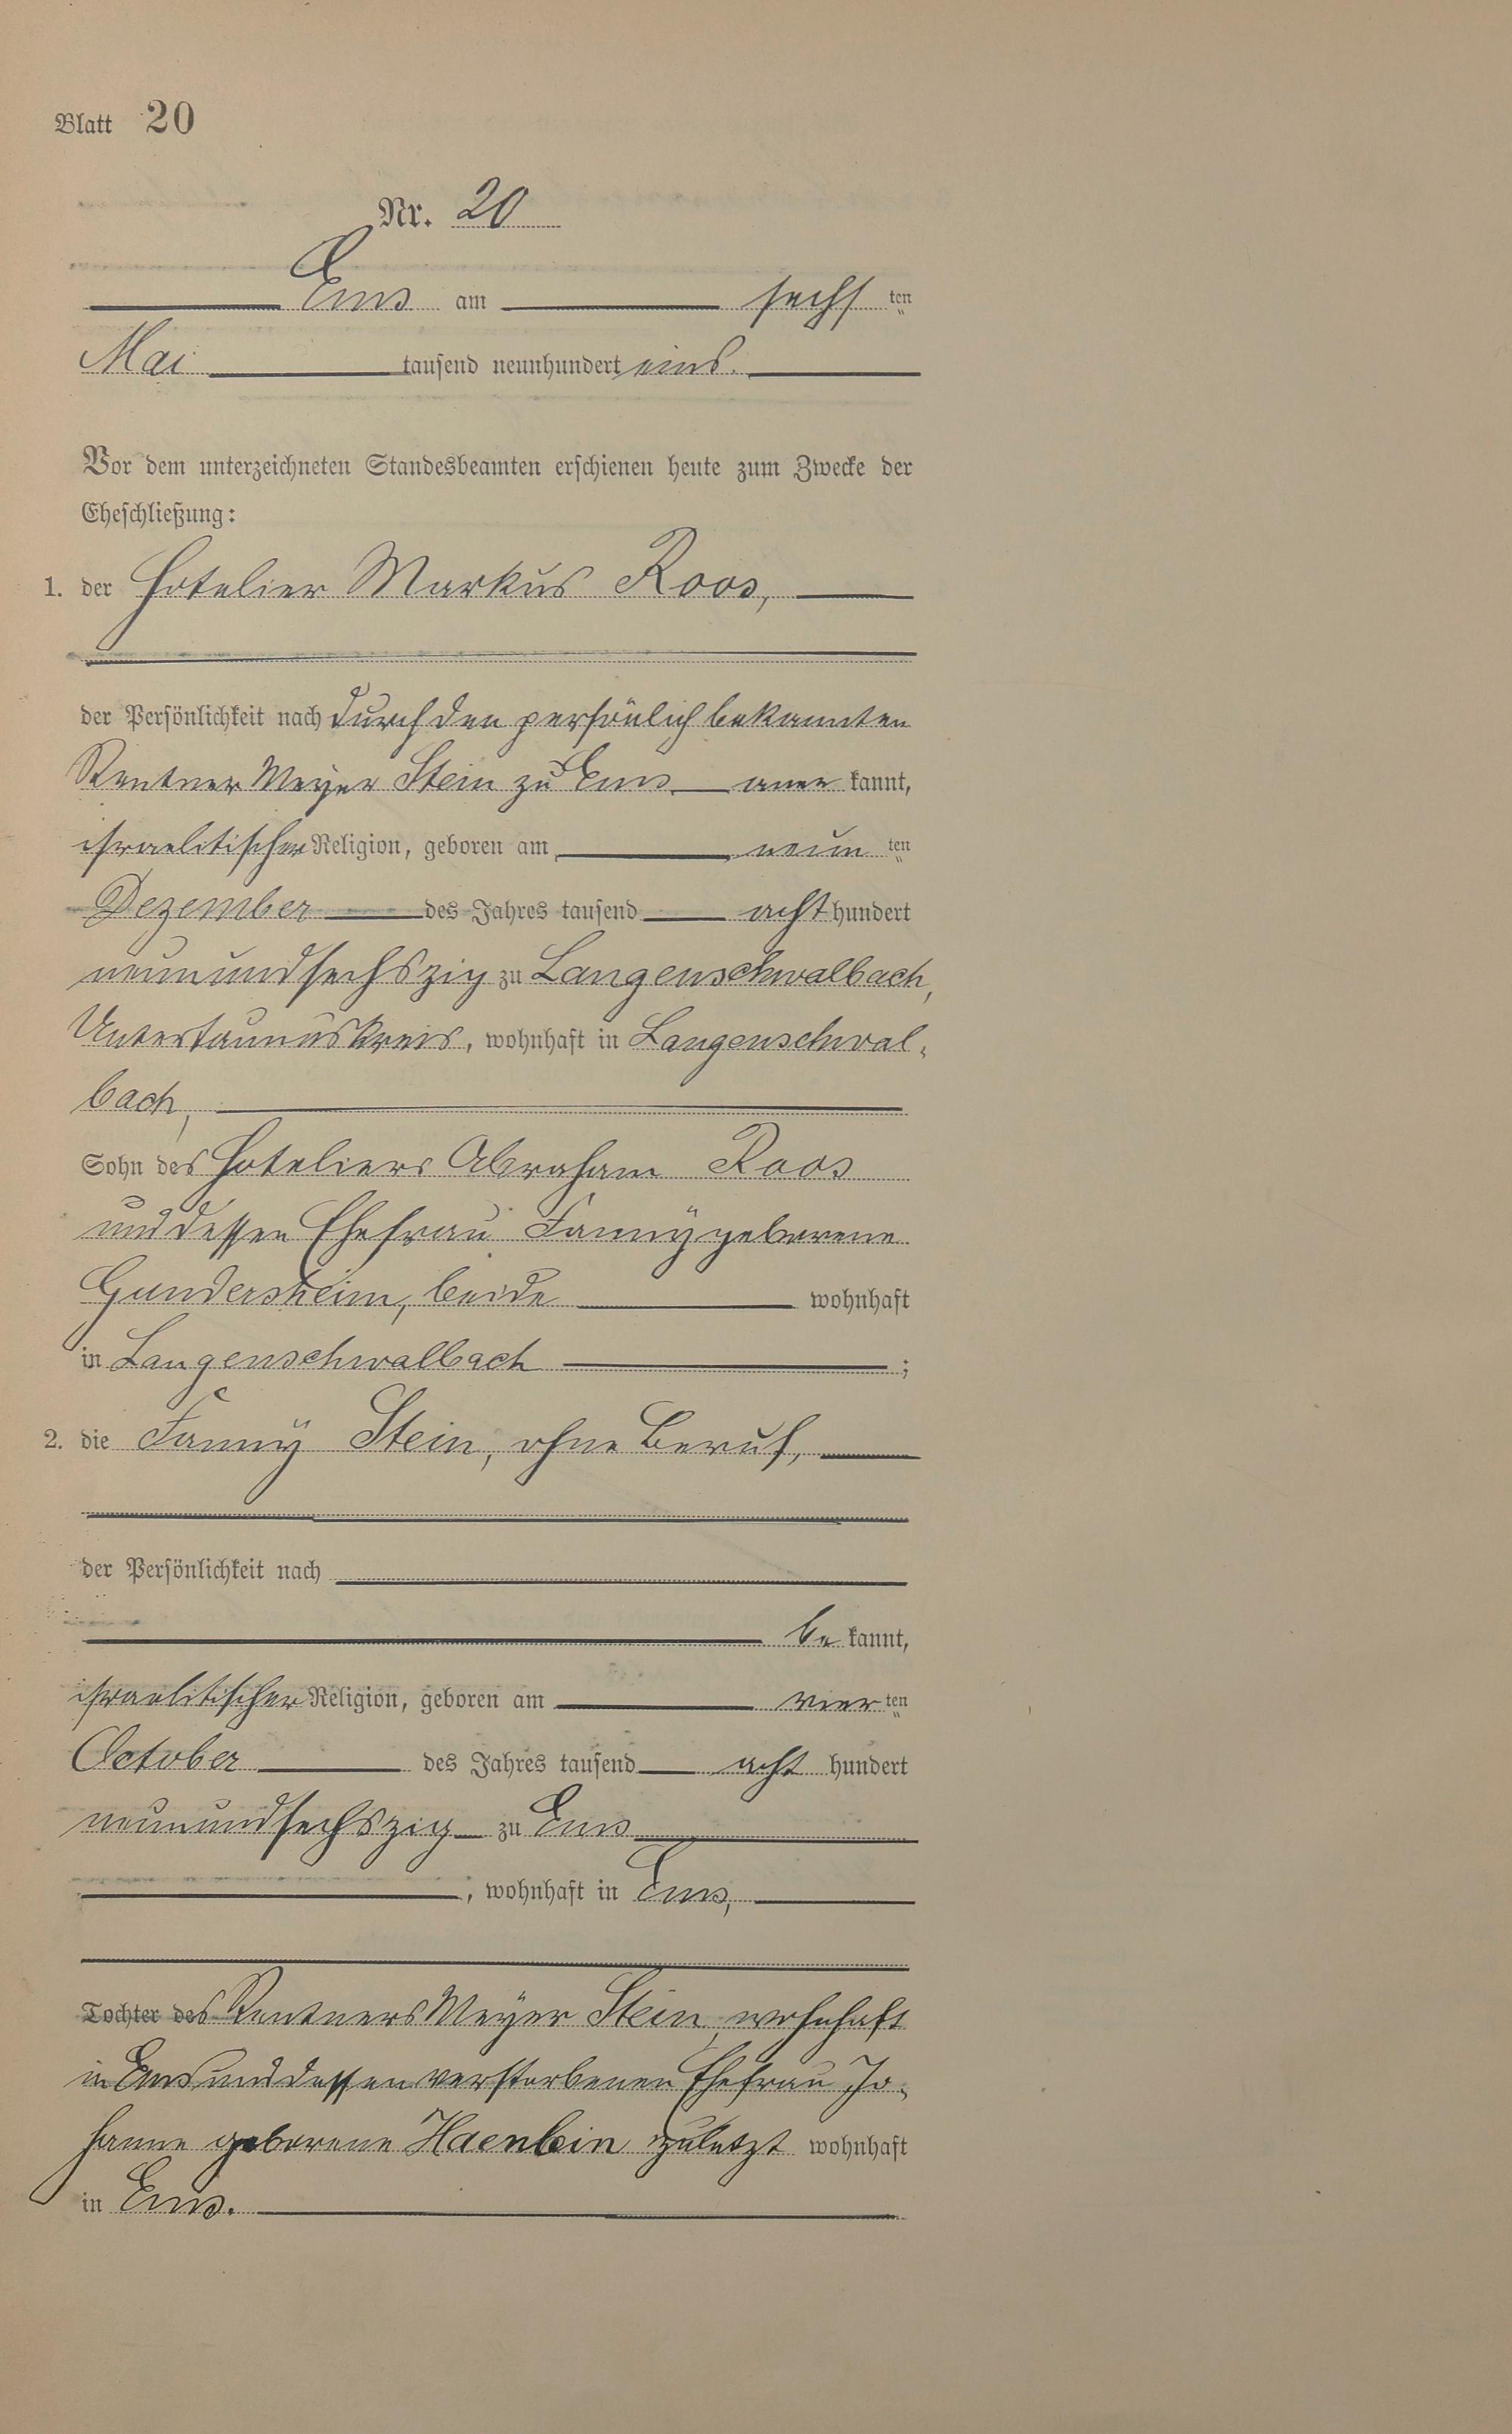 Blatt 20
Nr. 20
Ems am sechsten
Mai tausend neunhundert eins.
Vor dem unterzeichneten Standesbeamten erschienen heute zum Zwecke der
Eheschließung:
1. der Hotelier Markus Roos,
der Persönlichkeit nach durch den persönlich bekannten
Rentner Meyer Stein zu Ems anerkannt,
israelitischer Religion, geboren am neunten
Dezember des Jahres tausend achthundert
neunundsechszig zu Langenschwalbach,
Untertaunuskreis, wohnhaft in Langenschwal-
bach,
Sohn des Hoteliers Abraham Roos
und dessen Ehefrau Fanny geborene
Gundersheim, beide wohnhaft
in Langenschwalbach ;
2. die Fanny Stein, ohne Beruf,
der Persönlichkeit nach
bekannt,
israelitischer Religion, geboren am vierten
October des Jahres tausend acht hundert
neunundsechszig zu Ems
, wohnhaft in Ems,
Tochter des Rentners Meyer Stein, wohnhaft
in Ems und dessen verstorbenen Ehefrau Jo-
hanne geborene Haenlein zuletzt wohnhaft
in Ems.